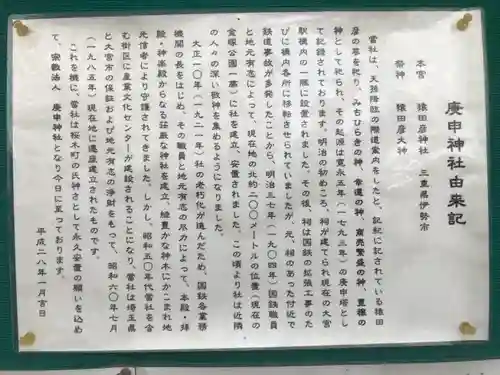 庚申神社由来記
本宮　猿田彦神社　三重県伊勢市
祭神　猿田彦大神
当社は、天孫降臨の際道案内をしたと、記紀に記されている猿田
彦の尊を祀り、みちひらきの神、幸運の神、商売繁盛の神、豊穣の
神として祀られ、その起源は寛永五年(一七九三年)の庚申塔とし
て記録されております。明治の初めころ、祠が建てられ現在の大宮
駅構内の一隅に設置されました。その後、祠は国鉄の拡張工事のた
びに構内各所に移転させられていましたが、元、祠のあった付近で
鉄道事故が多発したことから、明治三七年(一九〇四年)国鉄職員
と地元有志によって、現在地の北約二〇〇メートルの位置(現在の
金塚公園一基)に社を建立、安置されました。この頃より社は近隣
の人々の深い致神を集めるようになりました。
大正一〇年(一九二一年)社の老朽化が進んだため、国鉄各業務
機関の長をはじめ、その職員と地元有志の尽力によって、本殿・拝
殿・神楽殿からなる荘厳な神社を建立、緑豊かな神木にかこまれ地
元信者により守護されてきました。しかし、昭和五〇年代当社を含
む街区に産業文化センターが建設されることになり、当社は埼玉県
と大宮市の保証および地元有志の浄財をもって、昭和六〇年七月
(一九八五年)現在地に遷座建立されたものです。
これを機に、当社は桜木町の氏神さまとして永久安置の願いを込め
て、宗教法人　庚申神社となり今日に至っております。
平成二八年一月吉日